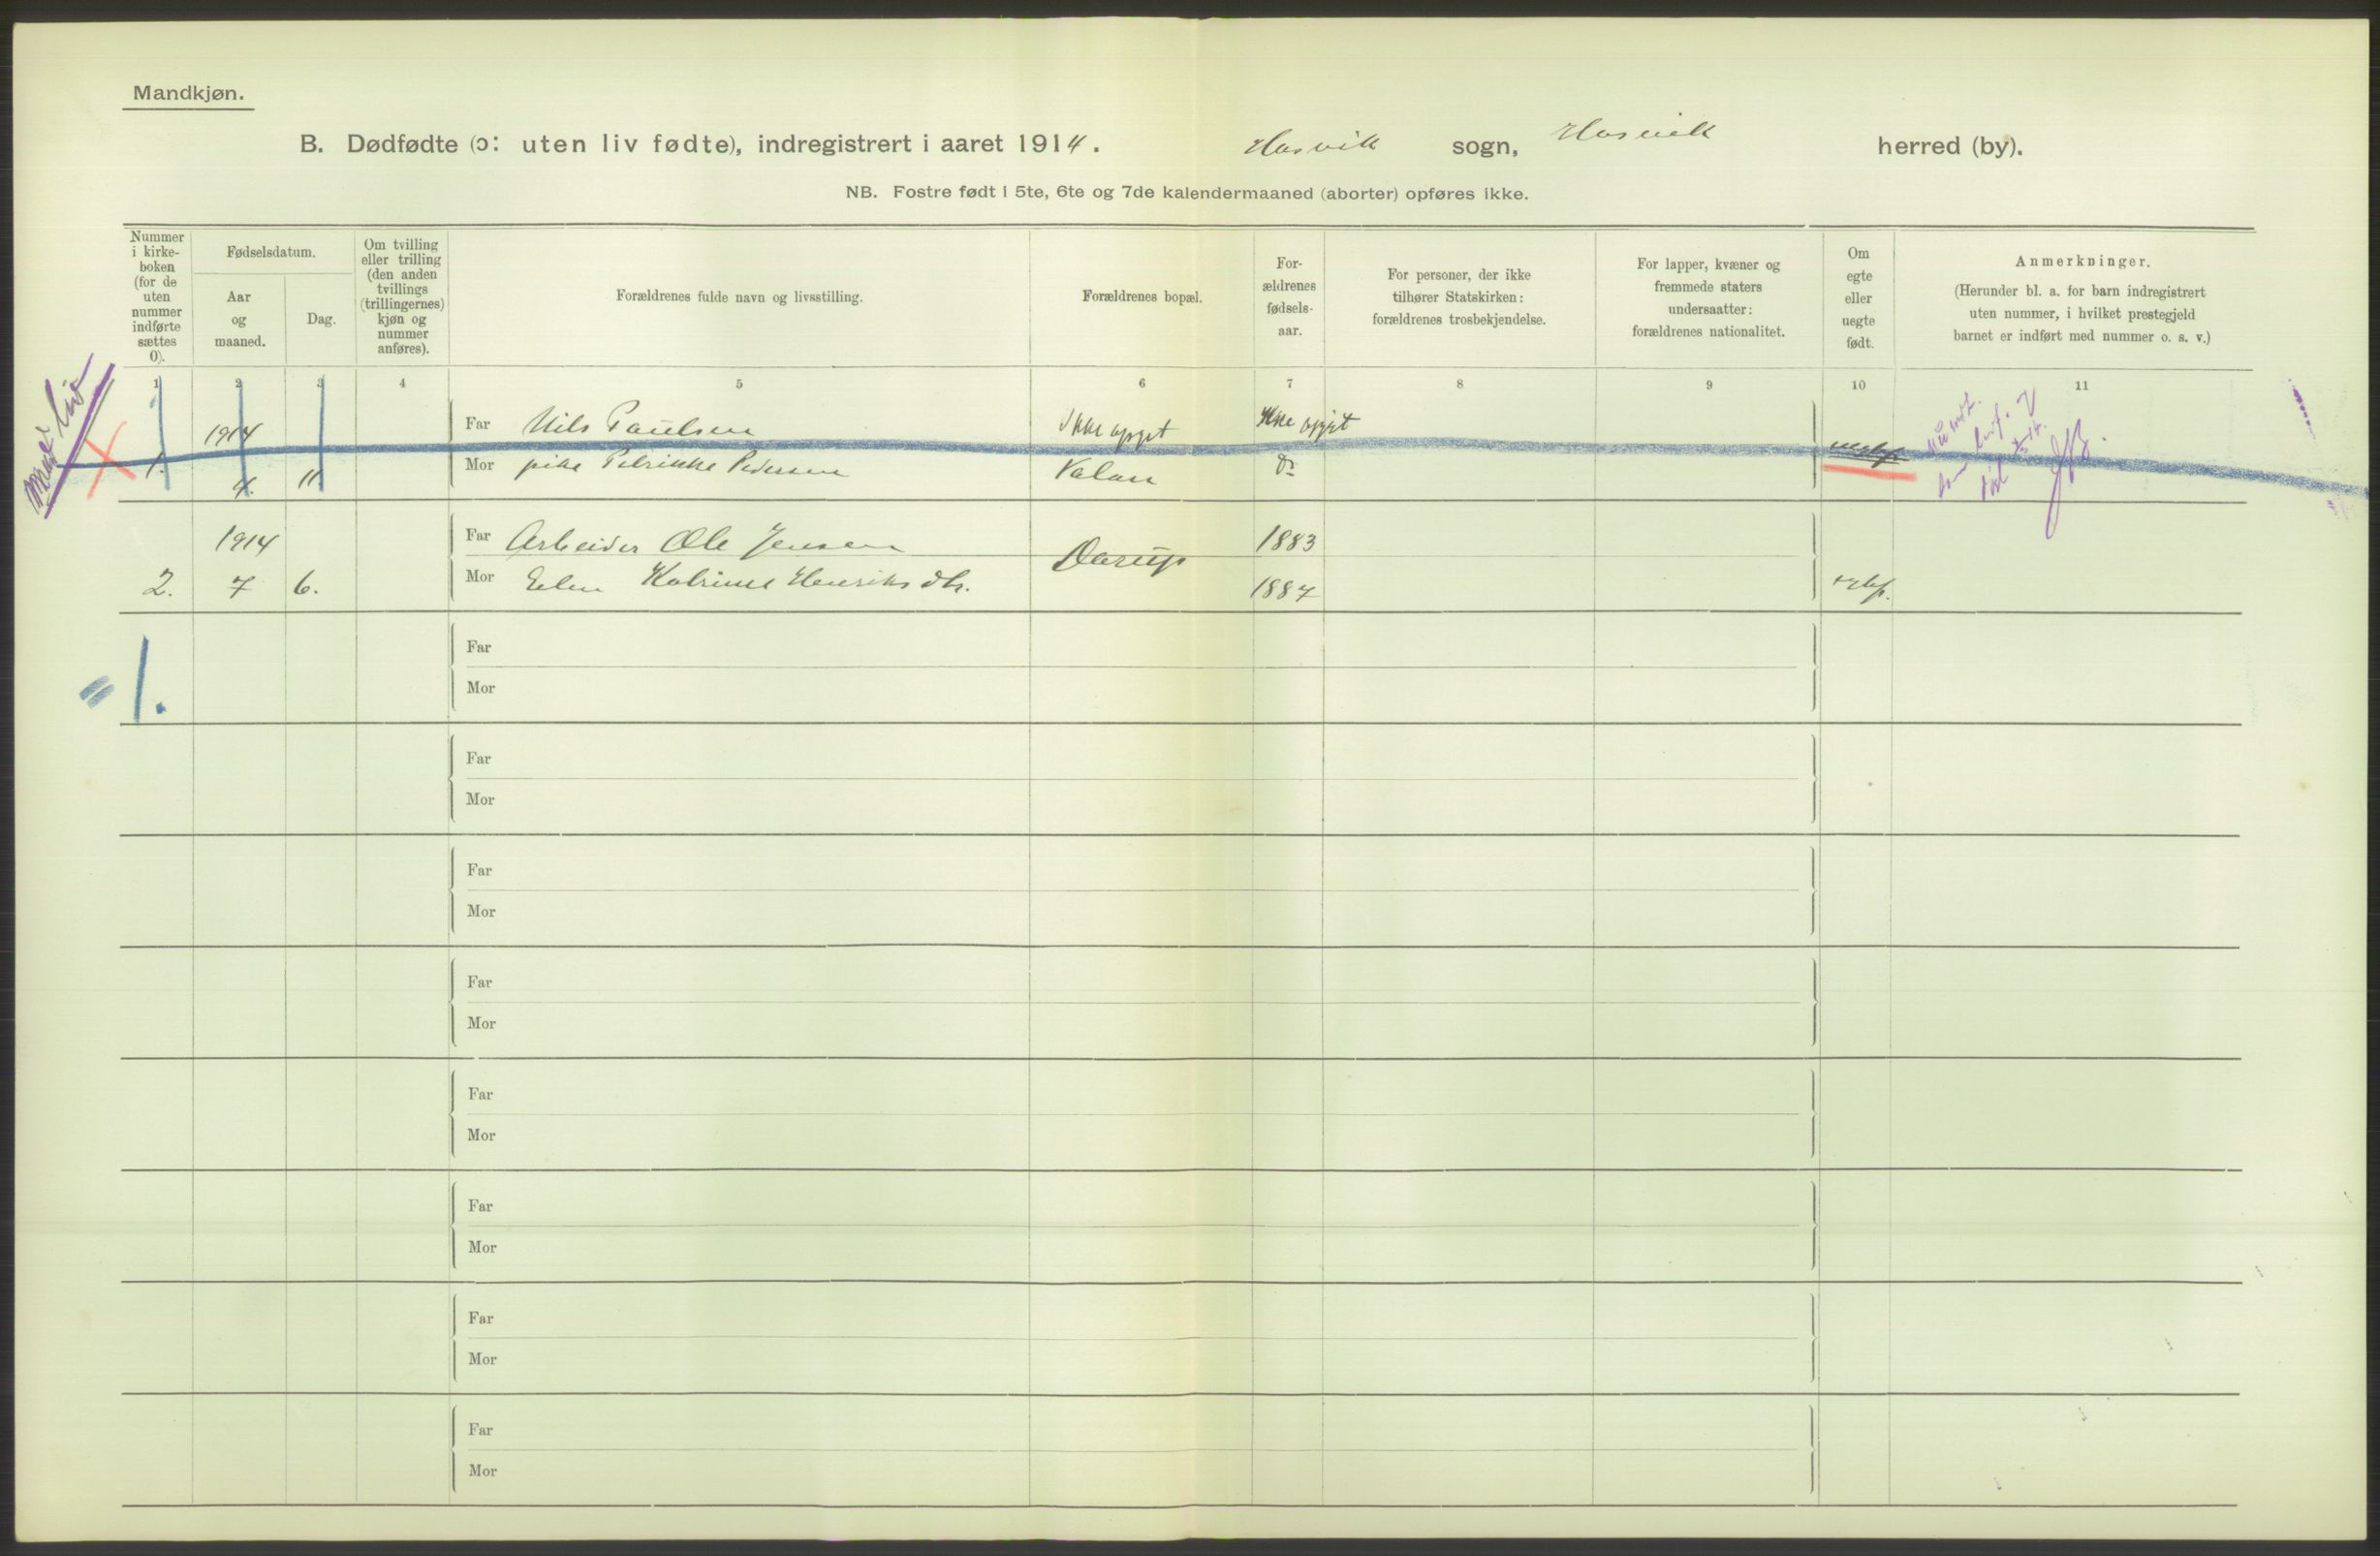 Mandkjøn.
B. Dødfødte (ɔ: uten liv fødte), indregistrert i aaret 1914. Hasvik sogn, Hasvik herred (by).
NB. Fostre født i 5te, 6te og 7de kalendermaaned (aborter) opføres ikke.
Nummer i kirke- boken (for de uten nummer indførte sættes 0).
Fødselsdatum.
Aar og maaned.
Dag.
Om tvilling eller trilling (den anden tvillings (trillingernes) kjøn og nummer anføres).
Forældrenes fulde navn og livsstilling.
Forældrenes bopæl.
For- ældrenes fødsels- aar.
For personer, der ikke tilhører Statskirken: forældrenes trosbekjendelse.
For lapper, kvæner og fremmede staters undersaatter: forældrenes nationalitet.
Om egte eller uegte født.
Anmerkninger.
(Herunder bl. a. for barn indregistrert uten nummer, i hvilket prestegjeld barnet er indført med nummer o. s. v.)
1 2 3 4 5 6 7 8 9 10 11
Med liv
1914 Far Nils Paulsen Ikke opget Ikke opgit
1. 11 Mor pike Petrikke Pedersen Valan do uegte
1914 Far Arbeider Ole Jensen 1883
2. 7 6. Mor Elen Katrine Henriksdtr. 1887
= 1.
Far
Mor
Far
Mor
Far
Mor
Far
Mor
Far
Mor
Far
Mor
Far
Mor
Far
Mor